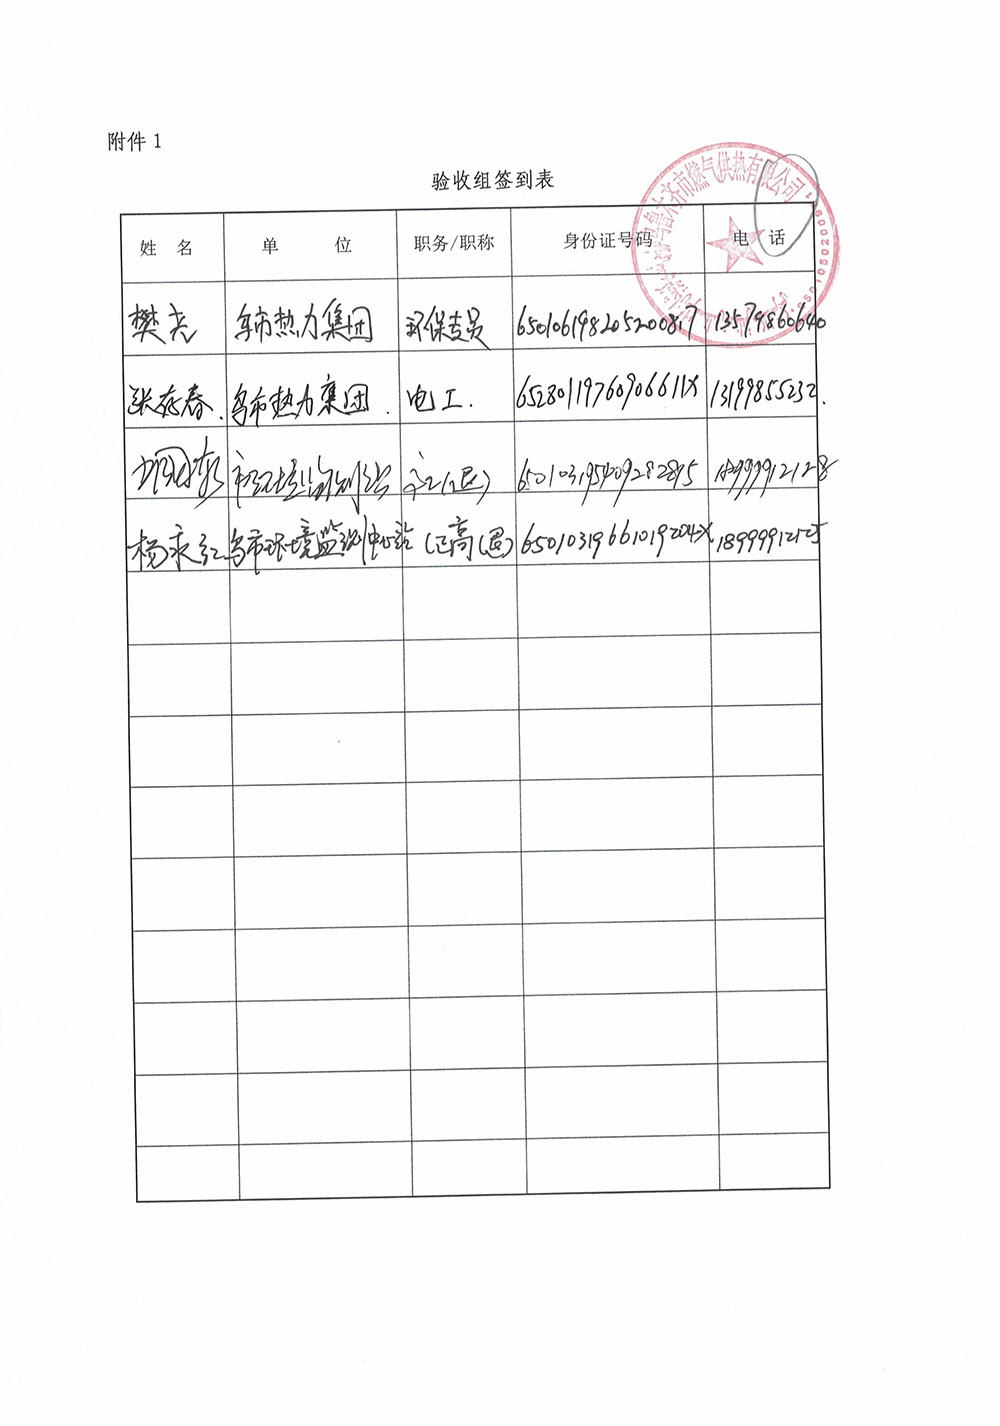 附件 1
验收组签到表
姓 名 单 位 职务/职称 身份证号码 电 话
乌鲁木齐市燃气供热有限公司
樊尧 乌市热力集团 环保专员 650106198205200817 13579860640
张存春. 乌市热力集团. 电工. 65280119760906611X 13199855232.
市环境监测 (退) 650103195409282815 18999912128
杨永红 乌市环境监测中心站 正高(退) 65010319661019204X 18999912125